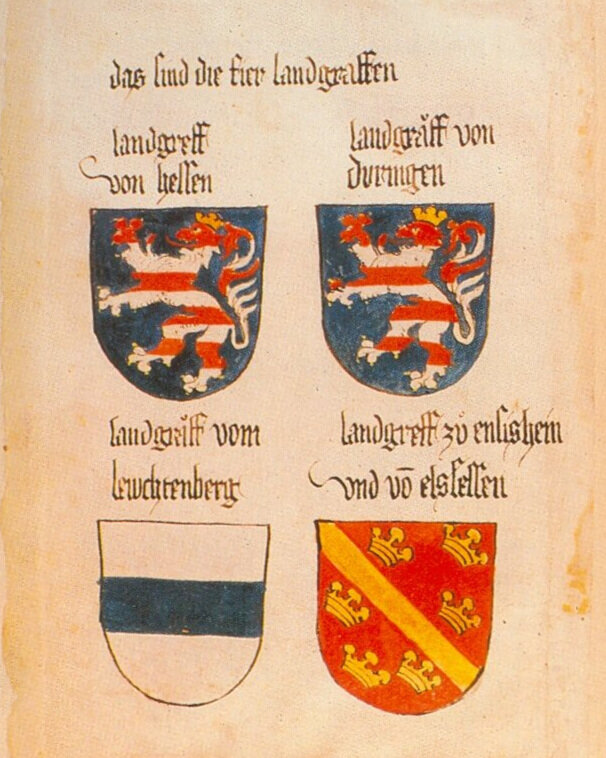 das sind die fier landgraffen
landgreff
von hessen
landgräff von
duringen
landgräff vom
lewchtenberg
landgreff zů ensishein
vnd vō elssessen